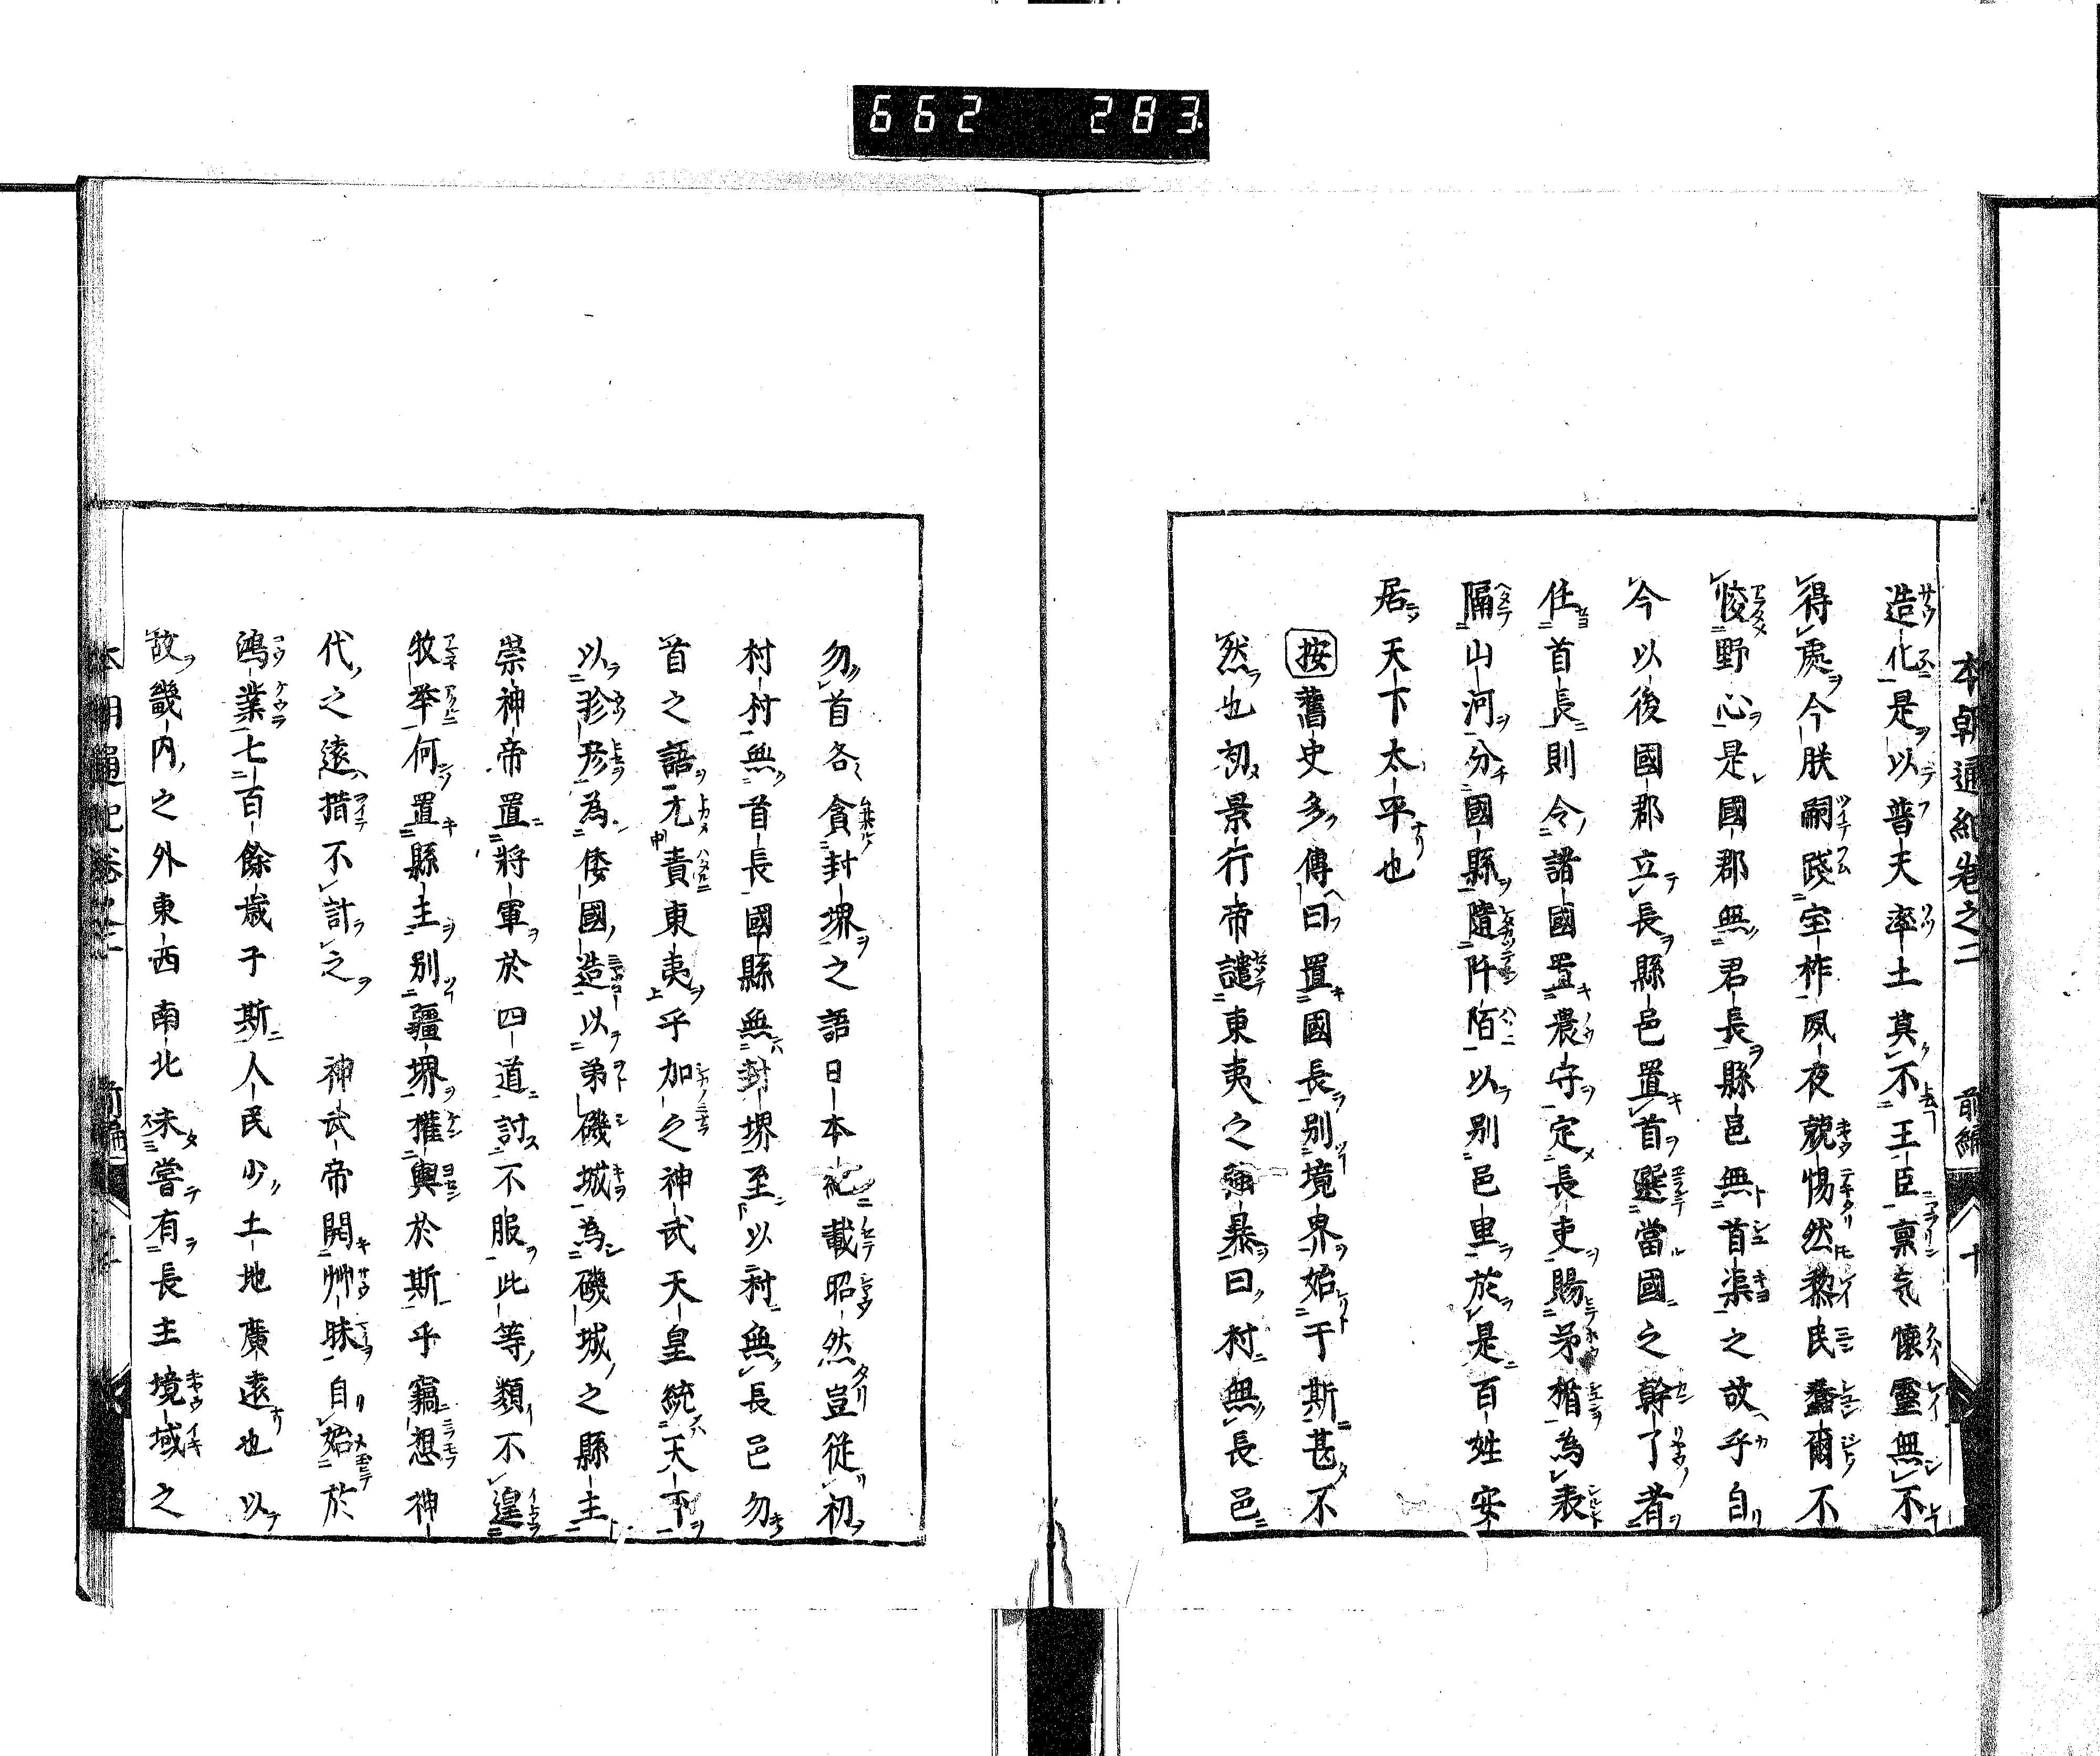 662 283
本朝通紀卷之二 前編 十
造化是以普天率土莫不王臣稟气懷靈無不
得處今朕嗣踐宝祚夙夜兢惕然黎民蠢爾不
悛野心是國郡無君長縣邑無首渠之故乎自
今以後國郡立長縣邑置首選當國之幹了者
任首長則令諸國置農守定長吏賜茅楯為表
隔山河分國縣隨阡陌以別邑里於是百姓安
居天下太平也
按舊史多傳曰置國長別境界始于斯甚不
然也初景行帝譴東夷之強暴曰村無長邑
勿首各貪封堺之語日本紀載昭然豈從初
村村無首長國縣無封堺至以村無長邑勿
首之語尤責東夷乎加之神武天皇統天下
以珍彥為倭國造以弟磯城為磯城之縣主
崇神帝置將軍於四道討不服此等類不遑
牧举何置縣主別疆堺權輿於斯乎竊想神
代之遠措不計之 神武帝開艸昧自始於
鴻業七百餘歲于斯人民少土地廣遠也以
故畿内之外東西南北未嘗有長主境域之
本朝通紀卷之二 前編